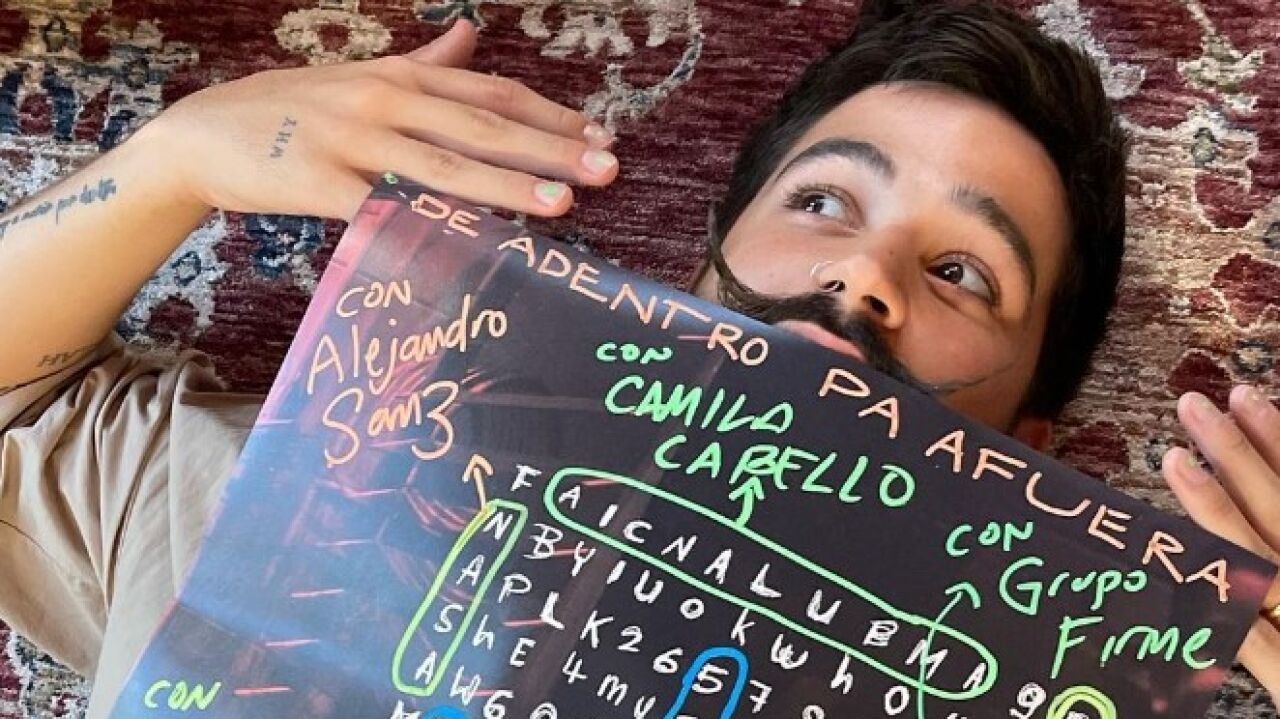 DE ADENTRO PA AFUERA
CON
Alejandro
Sanz
CON
CAMILA
CABELLO
CON
Grupo
Firme
F A I C N A L U B M A 9
N B Y I U O K W h O
A P L K 2 6 5 7
S h E 4 m y
A W 6
CON